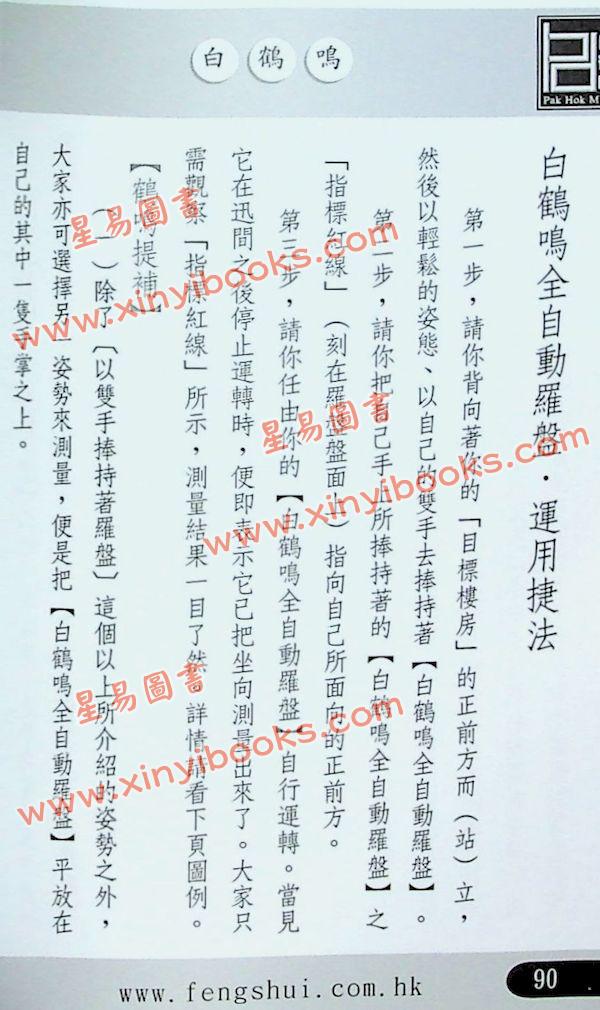 白鶴鳴
Pak Hok M
白鶴鳴全自動羅盤．運用捷法
第一步，請你背向著你的「目標樓房」的正前方而（站）立，
然後以輕鬆的姿態、以自己的雙手去捧持著【白鶴鳴全自動羅盤】。
第二步，請你把自己手上所捧持著的【白鶴鳴全自動羅盤】之
「指標紅線」（刻在羅盤盤面上）指向自己所面向的正前方。
第三步，請你任由你的【白鶴鳴全自動羅盤】自行運轉。當見
它在迅間之後停止運轉時，便即表示它已把坐向測量出來了。大家只
需觀察「指標紅線」所示，測量結果一目了然。詳情請看下頁圖例。
【鶴鳴提補】
（一）除了〔以雙手捧持著羅盤〕這個以上所介紹的姿勢之外，
大家亦可選擇另一姿勢來測量，便是把【白鶴鳴全自動羅盤】平放在
自己的其中一隻手掌之上。
星易圖書
www.xinyibooks.com
星易圖書
www.xinyibooks.com
星易圖書
www.xinyibooks.com
www.fengshui.com.hk
90